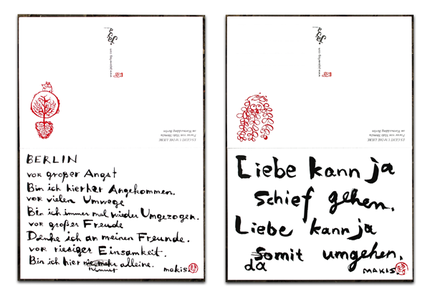 BERLIN
vor großer Angst
Bin ich hierher Angekommen.
vor vielen Umwege
Bin ich immer mal wieder Umgezogen.
vor großer Freude
Denke ich an meinen Freunde.
vor riesiger Einsamkeit.
Bin ich hier alleine.
makis
Liebe kann ja
schief gehen.
Liebe kann ja
somit umgehen.
da
MAKIS